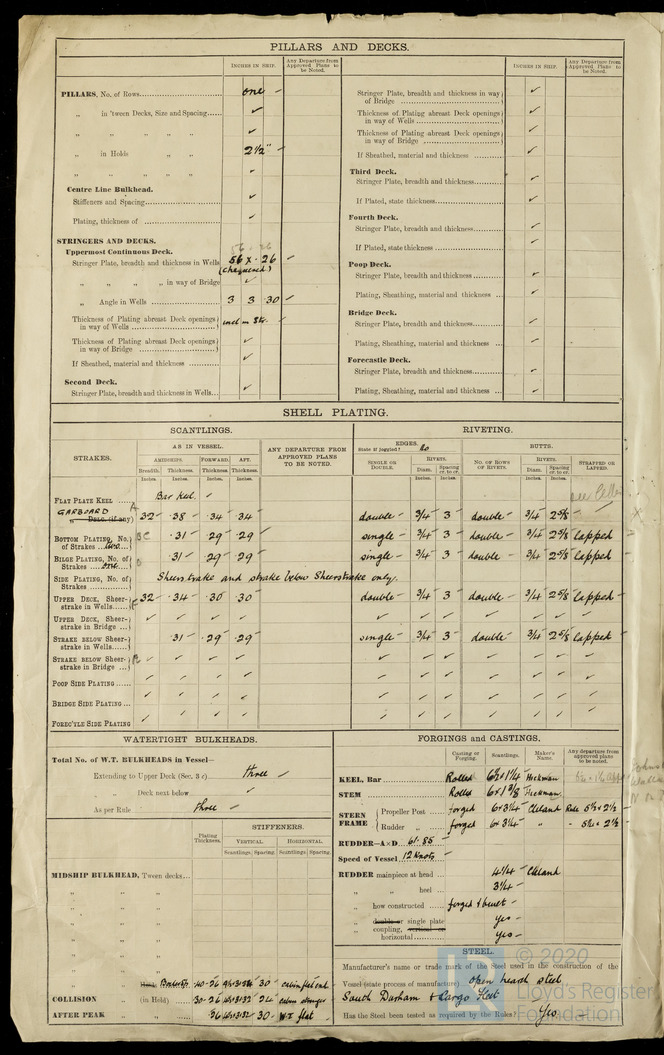 PILLARS AND DECKS.
INCHES IN SHIP.
Any Departure from Approved Plans to be Noted.
PILLARS, No. of Rows one
„ in 'tween Decks, Size and Spacing ✓
„ „ „ „ „ ✓
„ in Holds „ „ 2½"
„ „ „ „ „ ✓
Centre Line Bulkhead.
Stiffeners and Spacing ✓
Plating, thickness of ✓
STRINGERS AND DECKS.
Uppermost Continuous Deck.
56 · 26
Stringer Plate, breadth and thickness in Wells 56 x ·26 ✓
(chequered)
„ „ „ „ in way of Bridge ✓
„ Angle in Wells 3 3 30 ✓
Thickness of Plating abreast Deck openings in way of Wells
Thickness of Plating abreast Deck openings in way of Bridge ✓
If Sheathed, material and thickness ✓
Second Deck.
Stringer Plate, breadth and thickness in Wells ✓
INCHES IN SHIP.
Any Departure from Approved Plans to be Noted.
Stringer Plate, breadth and thickness in way of Bridge ✓
Thickness of Plating abreast Deck openings in way of Wells ✓
Thickness of Plating abreast Deck openings in way of Bridge ✓
If Sheathed, material and thickness ✓
Third Deck.
Stringer Plate, breadth and thickness ✓
If Plated, state thickness ✓
Fourth Deck.
Stringer Plate, breadth and thickness ✓
If Plated, state thickness ✓
Poop Deck.
Stringer Plate, breadth and thickness ✓
Plating, Sheathing, material and thickness ✓
Bridge Deck.
Stringer Plate, breadth and thickness ✓
Plating, Sheathing, material and thickness ✓
Forecastle Deck.
Stringer Plate, breadth and thickness ✓
Plating, Sheathing, material and thickness ✓
SHELL PLATING.
SCANTLINGS.
RIVETING.
STRAKES.
AS IN VESSEL.
AMIDSHIPS. FORWARD. AFT.
Breadth. Thickness. Thickness. Thickness.
Inches. Inches. Inches. Inches.
ANY DEPARTURE FROM APPROVED PLANS TO BE NOTED.
EDGES.
State if joggled? No
SINGLE OR DOUBLE.
RIVETS.
Diam. Spacing cr. to cr.
Inches. Inches.
BUTTS.
NO. OF ROWS OF RIVETS.
RIVETS.
Diam. Spacing cr. to cr.
Inches. Inches.
STRAPPED OR LAPPED.
FLAT PLATE KEEL Bar Keel. ✓
GARBOARD A 32 ·38 ·34 ·34 double 3/4 3 double 3/4 2 5/8
BOTTOM PLATING, No. of Strakes two BC ·31 ·29 ·29 single 3/4 3 double 3/4 2 5/8 lapped
BILGE PLATING, No. of Strakes one D ·31 ·29 ·29 single 3/4 3 double 3/4 2 5/8 lapped
SIDE PLATING, No. of Strakes Sheerstrake and strake below Sheerstrake only.
UPPER DECK, Sheerstrake in Wells F 32 ·34 ·30 ·30 double 3/4 3 double 3/4 2 5/8 lapped
UPPER DECK, Sheerstrake in Bridge ✓ ✓ ✓ ✓ ✓ ✓ ✓ ✓ ✓ ✓ ✓
STRAKE below Sheerstrake in Wells ·31 ·29 ·29 single 3/4 3 double 3/4 2 5/8 lapped
STRAKE below Sheerstrake in Bridge ✓ ✓ ✓ ✓ ✓ ✓ ✓ ✓ ✓ ✓ ✓
POOP SIDE PLATING ✓ ✓ ✓ ✓ ✓ ✓ ✓ ✓ ✓ ✓ ✓
BRIDGE SIDE PLATING ✓ ✓ ✓ ✓ ✓ ✓ ✓ ✓ ✓ ✓ ✓
FOREC'LE SIDE PLATING ✓ ✓ ✓ ✓ ✓ ✓ ✓ ✓ ✓ ✓ ✓
WATERTIGHT BULKHEADS.
Total No. of W.T. BULKHEADS in Vessel—
Extending to Upper Deck (Sec. 3 c) three ✓
„ Deck next below ✓
As per Rule three ✓
Plating Thickness.
STIFFENERS.
VERTICAL. HORIZONTAL.
Scantlings. Spacing. Scantlings. Spacing.
MIDSHIP BULKHEAD, Tween decks
COLLISION (in Hold)
AFTER PEAK „ W.T. flat
FORGINGS and CASTINGS.
Casting or Forging. Scantlings. Maker's Name. Any departure from approved plans to be noted.
KEEL, Bar Rolled 6½ x 1¼ Hickman
STEM Rolled 6 x 1 3/8 Hickman
STERN FRAME
Propeller Post forged 6 x 3¼ Cleland Rule 5½ x 2½
Rudder „ forged 6 x 3¼ „ „ 5½ x 2½
RUDDER—A×D 61·85
Speed of Vessel 12 Knots
RUDDER mainpiece at head 4¼ Cleland
„ „ heel 3¼
„ how constructed forged & built
„ double or single plate yes
„ coupling, vertical or horizontal yes
STEEL.
Manufacturer's name or trade mark of the Steel used in the construction of the
Vessel (state process of manufacture) open hearth steel
South Durham & Cargo Fleet
Has the Steel been tested as required by the Rules? Yes
© 2020
Lloyd's Register
Foundation